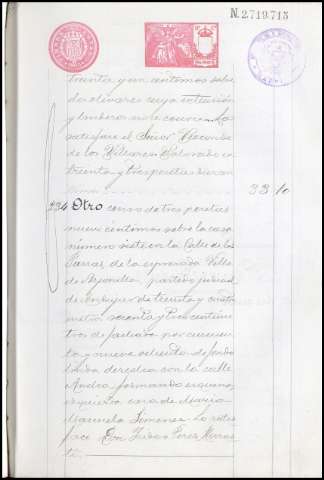 N. 2.719.713
treinta y un centimos sobre
de olivares cuya estension
y linderos no se conocen. Lo
satisface el Señor Vizconde
de los Villares valorado en
treinta y tres pesetas
33 10
234 Otro censo de tres pesetas
nueve centimos sobre la casa
número siete en la Calle de las
Parras, de la espresada Villa
de Arjonilla, partido judicial
de Andujar de treinta y cuatro
metros ochenta y tres centime
tros de fachada por cincuen
ta y nueve ochenta de fondo
linda derecha con la calle
Andra formando esquina,
izquierda casa de Maria
Manuela Jimenez. Lo satis
face Don Juan Perez